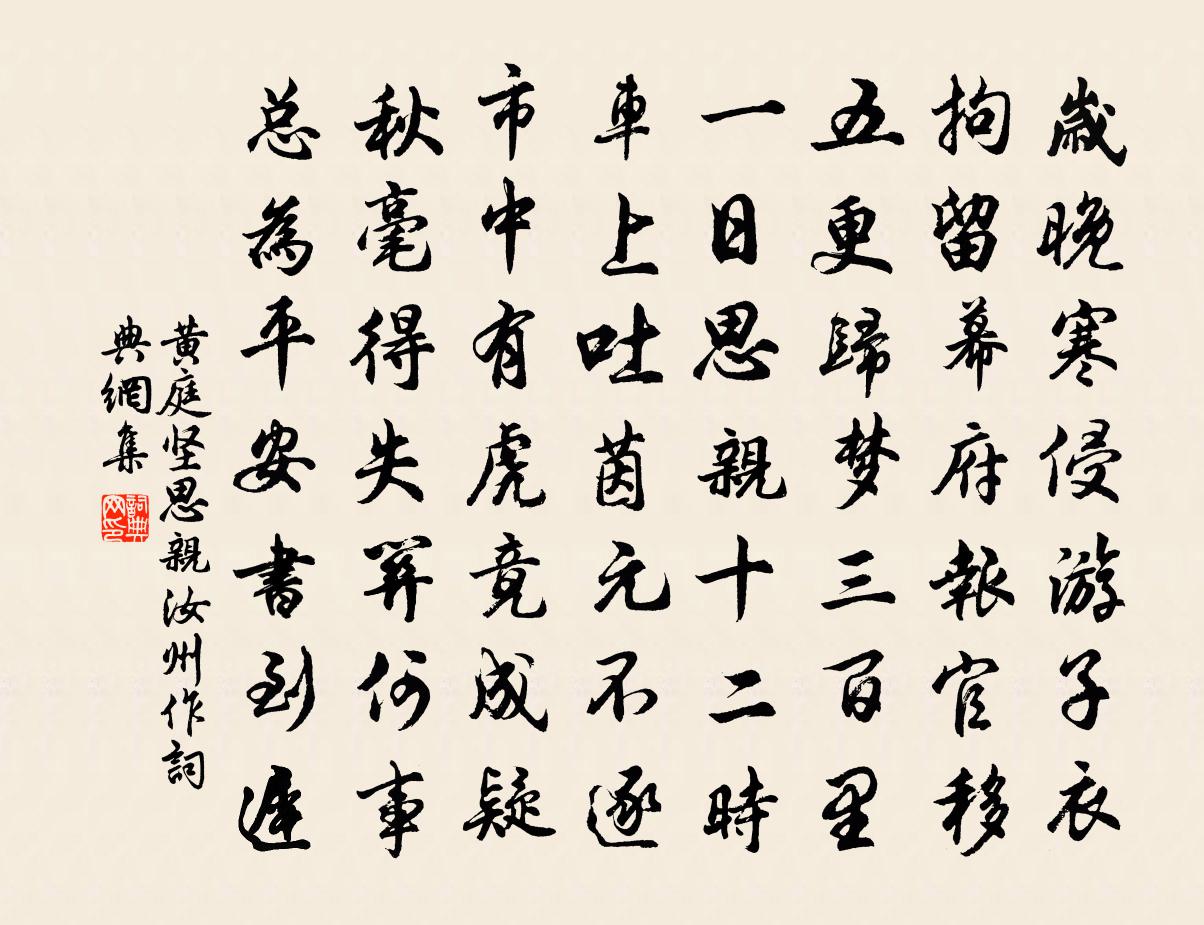 歲晚寒侵游子衣
拘留幕府報官移
五更歸梦三百里
一日思親十二時
車上吐茵元不逐
市中有虎竟成疑
秋毫得失関何事
总為平安書到遲
黄庭坚思親汝州作詞
典網集
詞典
网印